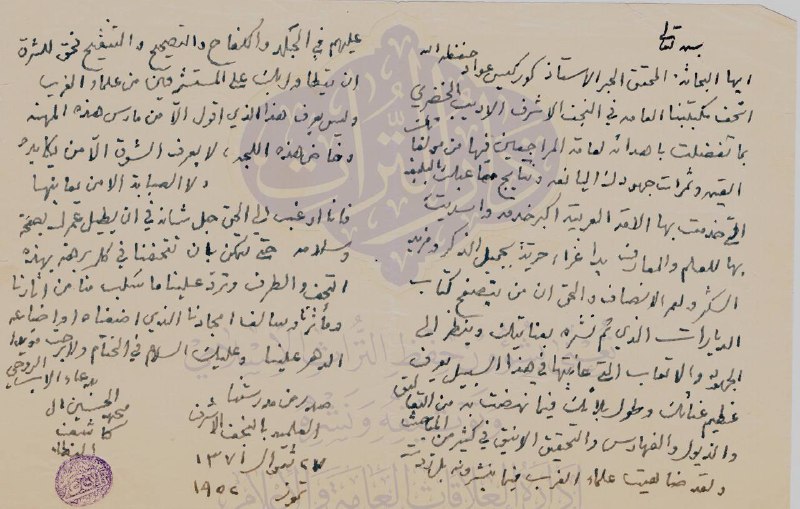 بسمه تعالى
ايها البحاثة المحقق الحبر الاستاذ كوركيس عواد حفظه الله
اتحف مكتبتنا العامة في النجف الاشرف الاديب الخضري
بما تفضلت باهدائه لعامة المراجعين فيها من مؤلفاتك
القيمة وثمرات جهودك اليانعة ونتايج متاعبك البليغة
التي خدمت بها الامة العربية اكبر خدمة واسديت
بها للعلم والمعارف يداً غراء حرية بجميل الذكر ومزيد
الشكر ولعمر الانصاف والحق ان من يتصفح كتاب
الديارات الذي تم نشره بعنايتك وينظر الى
الجهود والاتعاب التي عانيتها في هذا السبيل يعرف
عظيم عنائك وطول بلائك فيما نهضت به من التعاليق
والذيول والفهارس والتحقيق الانيق في كثير من المباحث
ولقد ضاهيت علماء الغرب فيما ينشرونه بل زدت
عليهم في الجهد والكفاح والتصحيح والتنقيح فحق للشرق
ان يتطاول بك على المستشرقين من علماء الغرب
وليس يعرف هذا الذي اقول الا من مارس هذه المهنة
وخاض هذه اللجج، لا يعرف الشوق الا من يكابده
ولا الصبابة الا من يعانيها
فانا ارغب الى الحق جل شانه في ان يطيل عمرك بصحة
وسلامة حتى تتمكن بان تتحفنا في كل برهة بهذه
التحف والطرف وترد علينا ما سلب منا من آثارنا
ومآثرنا وسالف امجادنا الذي اضعناه او اضاعه
الدهر علينا وعليك السلام في الختام ولا برحت مؤيداً
بدعاء الاب الروحي
محمد الحسين ال
كاشف
الغطاء
صدر من مدرستنا
العلمية بالنجف الاشرف
٢٧ شوال ١٣٧١
تموز ١٩٥٢